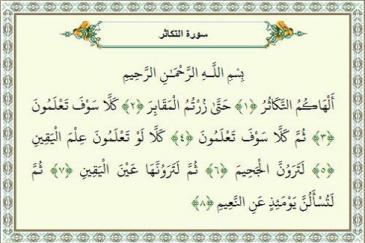 سورة التكاثر
بِسْمِ اللَّـهِ الرَّحْمَـٰنِ الرَّحِيمِ
أَلْهَاكُمُ التَّكَاثُرُ ﴿١﴾ حَتَّىٰ زُرْتُمُ الْمَقَابِرَ ﴿٢﴾ كَلَّا سَوْفَ تَعْلَمُونَ
﴿٣﴾ ثُمَّ كَلَّا سَوْفَ تَعْلَمُونَ ﴿٤﴾ كَلَّا لَوْ تَعْلَمُونَ عِلْمَ الْيَقِينِ
﴿٥﴾ لَتَرَوُنَّ الْجَحِيمَ ﴿٦﴾ ثُمَّ لَتَرَوُنَّهَا عَيْنَ الْيَقِينِ ﴿٧﴾ ثُمَّ
لَتُسْأَلُنَّ يَوْمَئِذٍ عَنِ النَّعِيمِ ﴿٨﴾